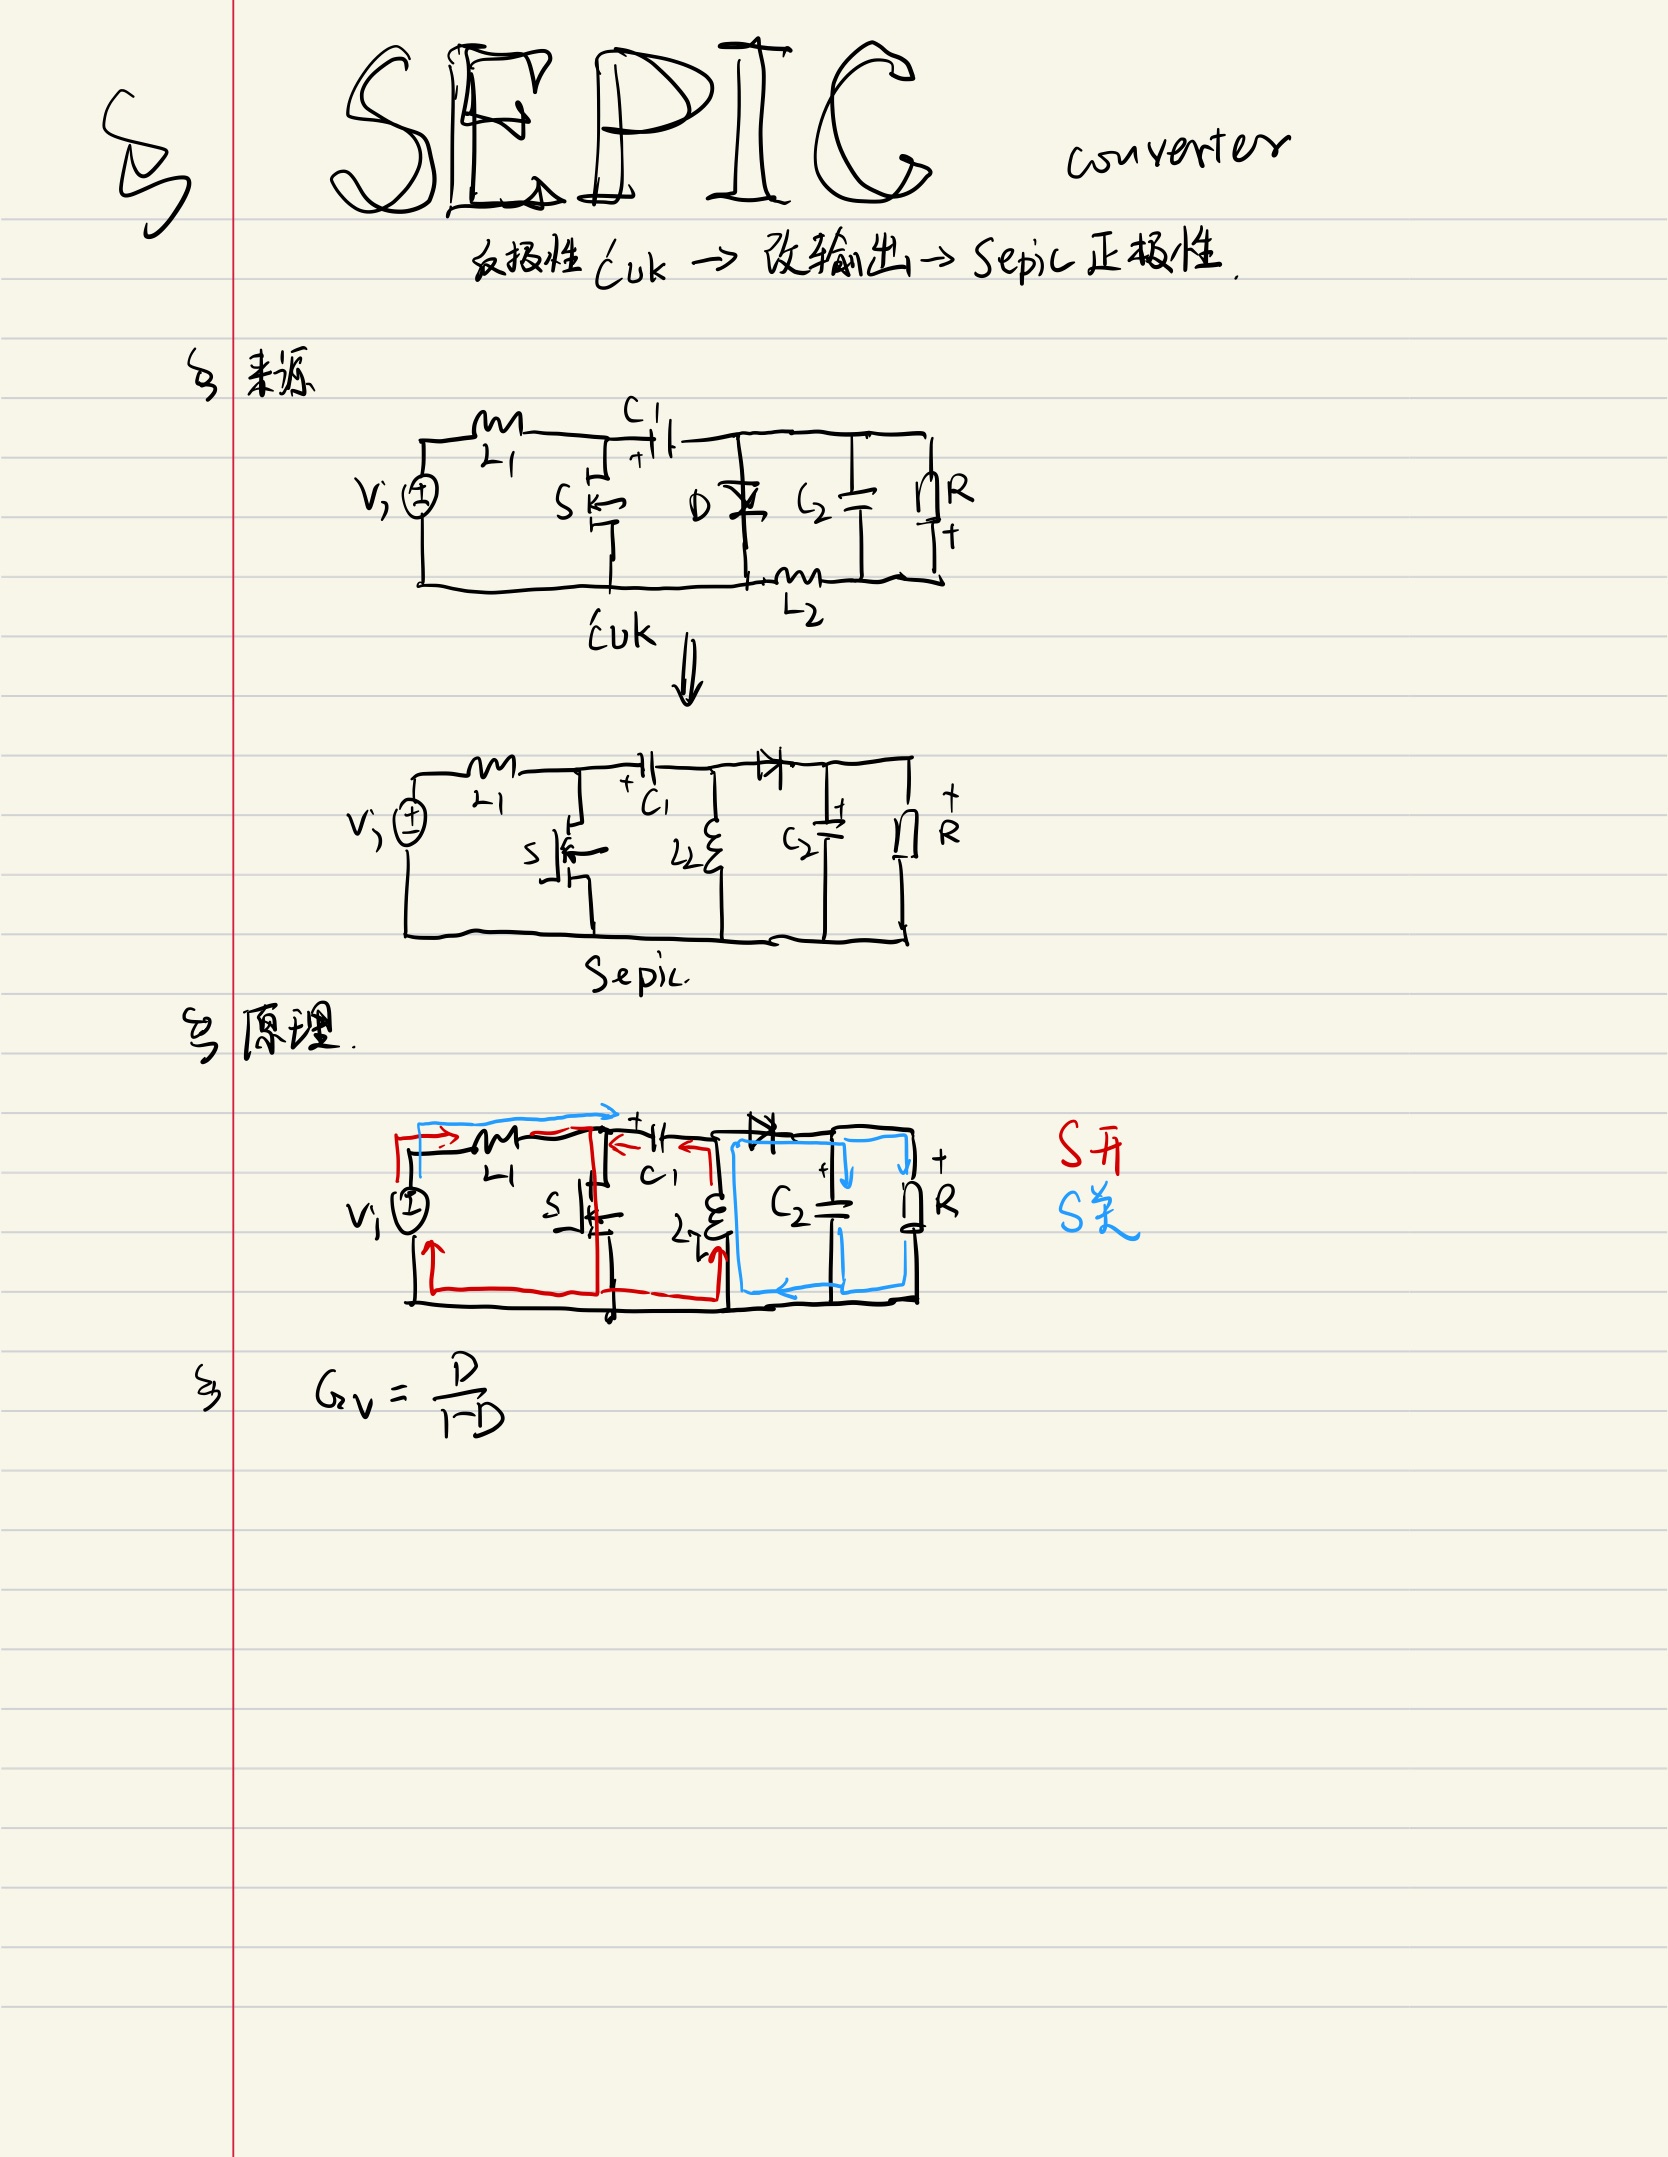 § SEPIC converter
反极性 Ćuk → 改输出 → Sepic 正极性.
§ 来源
C1
+
L1
Vi
S
D
C2
R
+
L2
Ćuk
⇓
L1
+
C1
Vi
S
L2
C2
+
+
R
Sepic.
§ 原理.
+
L1
C1
Vi
S
L2
C2
+
+
R
S开
S关
§ Gv = D/(1-D)